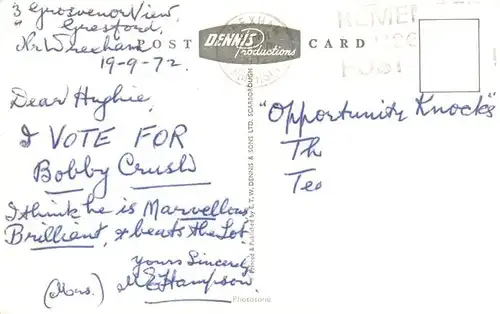 3 Grosvenor View,
" Gresford,
Nr. Wrexham
19-9-72.
POST CARD
DENNIS
Productions
REME
POST
Dear Hughie,
I VOTE FOR
Bobby Crush
I think he is Marvellous,
Brilliant, & beats the Lot,
Yours Sincerely,
(Mrs.) M E Hampson.
Photasone
Printed & Published by E. T. W. DENNIS & SONS LTD. SCARBOROUGH
"Opportunity Knocks"
Th
Tea